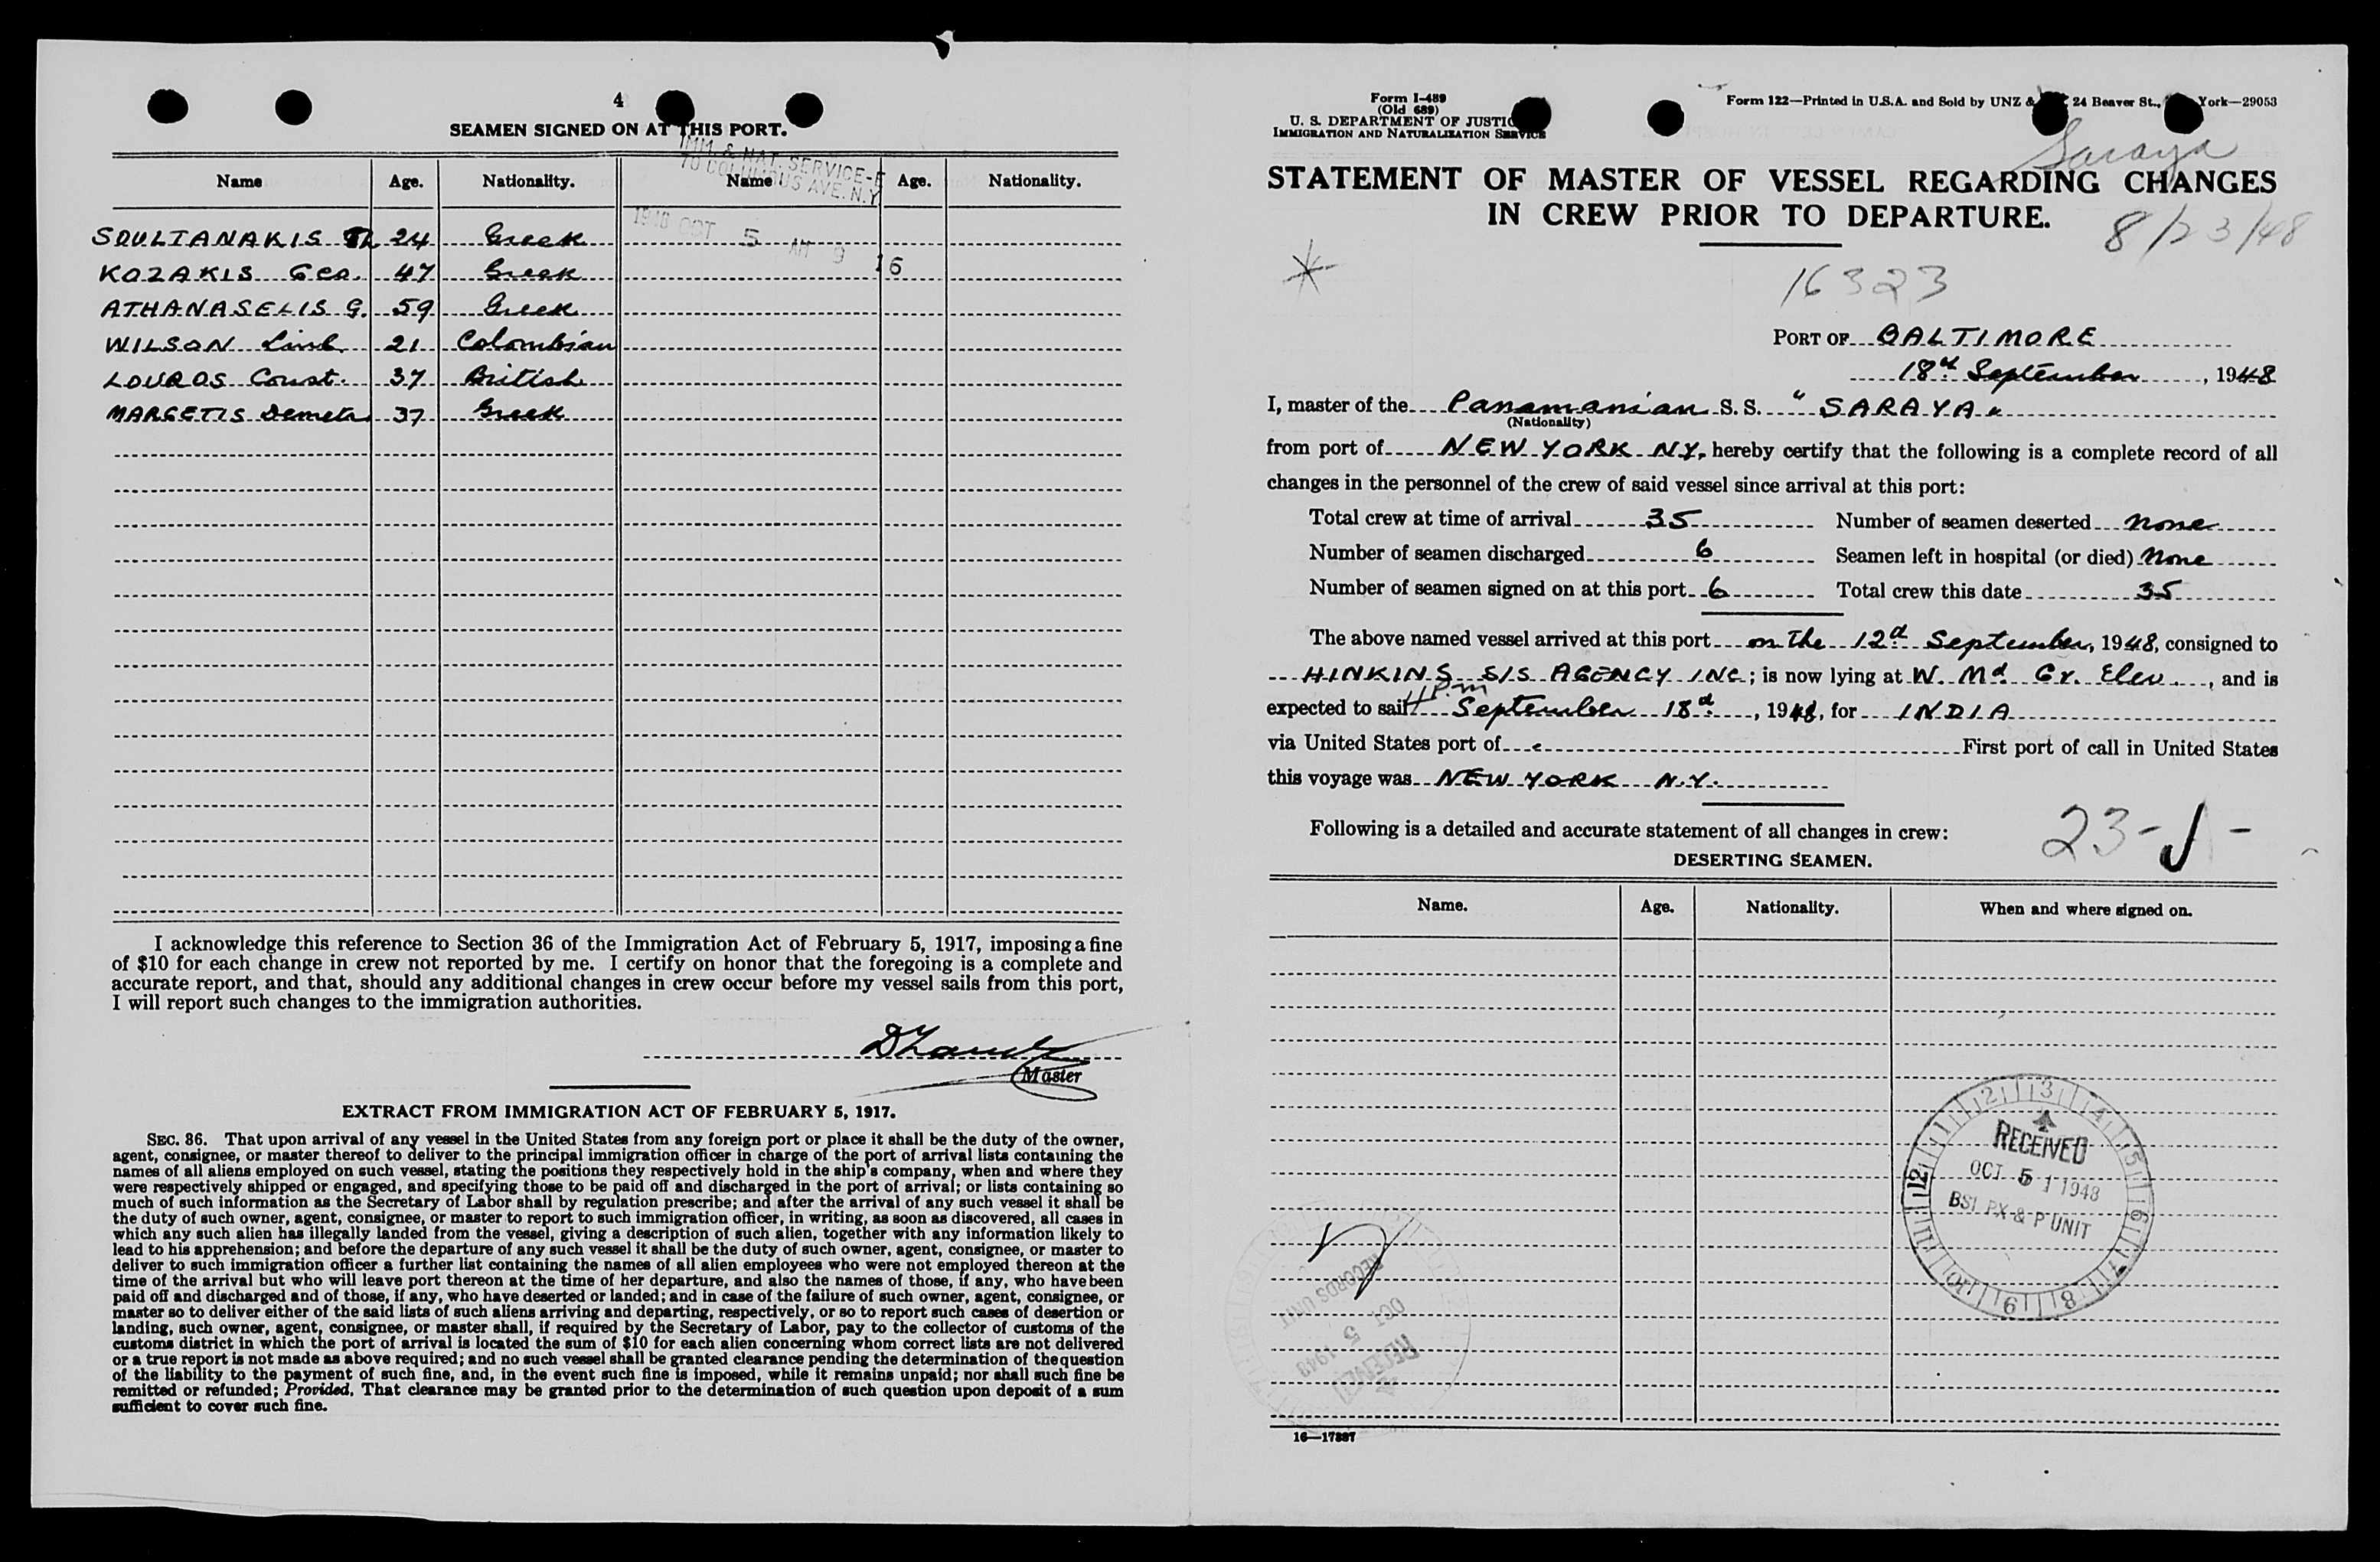 4
SEAMEN SIGNED ON AT THIS PORT.
IMM. & NAT. SERVICE-E
TO COLUMBUS AVE. N.Y.
Name Age. Nationality. Name Age. Nationality.
1948 OCT 5 AM 9 16
SOULTANAKIS Th 24 Greek
KOZAKIS Geo. 47 Greek
ATHANASELIS G. 59 Greek
WILSON 21 Colombian
LOUROS Const. 37 British
MARGETIS Demetr 37 Greek
I acknowledge this reference to Section 36 of the Immigration Act of February 5, 1917, imposing a fine
of $10 for each change in crew not reported by me. I certify on honor that the foregoing is a complete and
accurate report, and that, should any additional changes in crew occur before my vessel sails from this port,
I will report such changes to the immigration authorities.
Master
EXTRACT FROM IMMIGRATION ACT OF FEBRUARY 5, 1917.
SEC. 36. That upon arrival of any vessel in the United States from any foreign port or place it shall be the duty of the owner,
agent, consignee, or master thereof to deliver to the principal immigration officer in charge of the port of arrival lists containing the
names of all aliens employed on such vessel, stating the positions they respectively hold in the ship's company, when and where they
were respectively shipped or engaged, and specifying those to be paid off and discharged in the port of arrival; or lists containing so
much of such information as the Secretary of Labor shall by regulation prescribe; and after the arrival of any such vessel it shall be
the duty of such owner, agent, consignee, or master to report to such immigration officer, in writing, as soon as discovered, all cases in
which any such alien has illegally landed from the vessel, giving a description of such alien, together with any information likely to
lead to his apprehension; and before the departure of any such vessel it shall be the duty of such owner, agent, consignee, or master to
deliver to such immigration officer a further list containing the names of all alien employees who were not employed thereon at the
time of the arrival but who will leave port thereon at the time of her departure, and also the names of those, if any, who have been
paid off and discharged and of those, if any, who have deserted or landed; and in case of the failure of such owner, agent, consignee, or
master so to deliver either of the said lists of such aliens arriving and departing, respectively, or so to report such cases of desertion or
landing, such owner, agent, consignee, or master shall, if required by the Secretary of Labor, pay to the collector of customs of the
customs district in which the port of arrival is located the sum of $10 for each alien concerning whom correct lists are not delivered
or a true report is not made as above required; and no such vessel shall be granted clearance pending the determination of the question
of the liability to the payment of such fine, and, in the event such fine is imposed, while it remains unpaid; nor shall such fine be
remitted or refunded; Provided, That clearance may be granted prior to the determination of such question upon deposit of a sum
sufficient to cover such fine.
Form I-489
(Old 689)
U. S. DEPARTMENT OF JUSTIC
IMMIGRATION AND NATURALIZATION SERVICE
Form 122—Printed in U.S.A. and Sold by UNZ & 24 Beaver St., York—29053
Saraya
STATEMENT OF MASTER OF VESSEL REGARDING CHANGES
IN CREW PRIOR TO DEPARTURE.
8/23/48
16323
PORT OF BALTIMORE
18th September, 1948
I, master of the Panamanian S. S. "SARAYA"
(Nationality)
from port of NEW YORK N.Y, hereby certify that the following is a complete record of all
changes in the personnel of the crew of said vessel since arrival at this port:
Total crew at time of arrival 35 Number of seamen deserted None
Number of seamen discharged 6 Seamen left in hospital (or died) None
Number of seamen signed on at this port 6 Total crew this date 35
The above named vessel arrived at this port on the 12th September, 1948, consigned to
HINKINS S/S AGENCY INC; is now lying at W. Md. Gr. Elev., and is
expected to sail 11 P.m September 18th, 1948, for INDIA
via United States port of First port of call in United States
this voyage was NEW YORK N.Y.
Following is a detailed and accurate statement of all changes in crew:
23-
DESERTING SEAMEN.
Name. Age. Nationality. When and where signed on.
RECEIVED
OCT 5 1948
BSI PX & P UNIT
RECEIVED
OCT 5 1948
RECORDS UNIT
16—17887